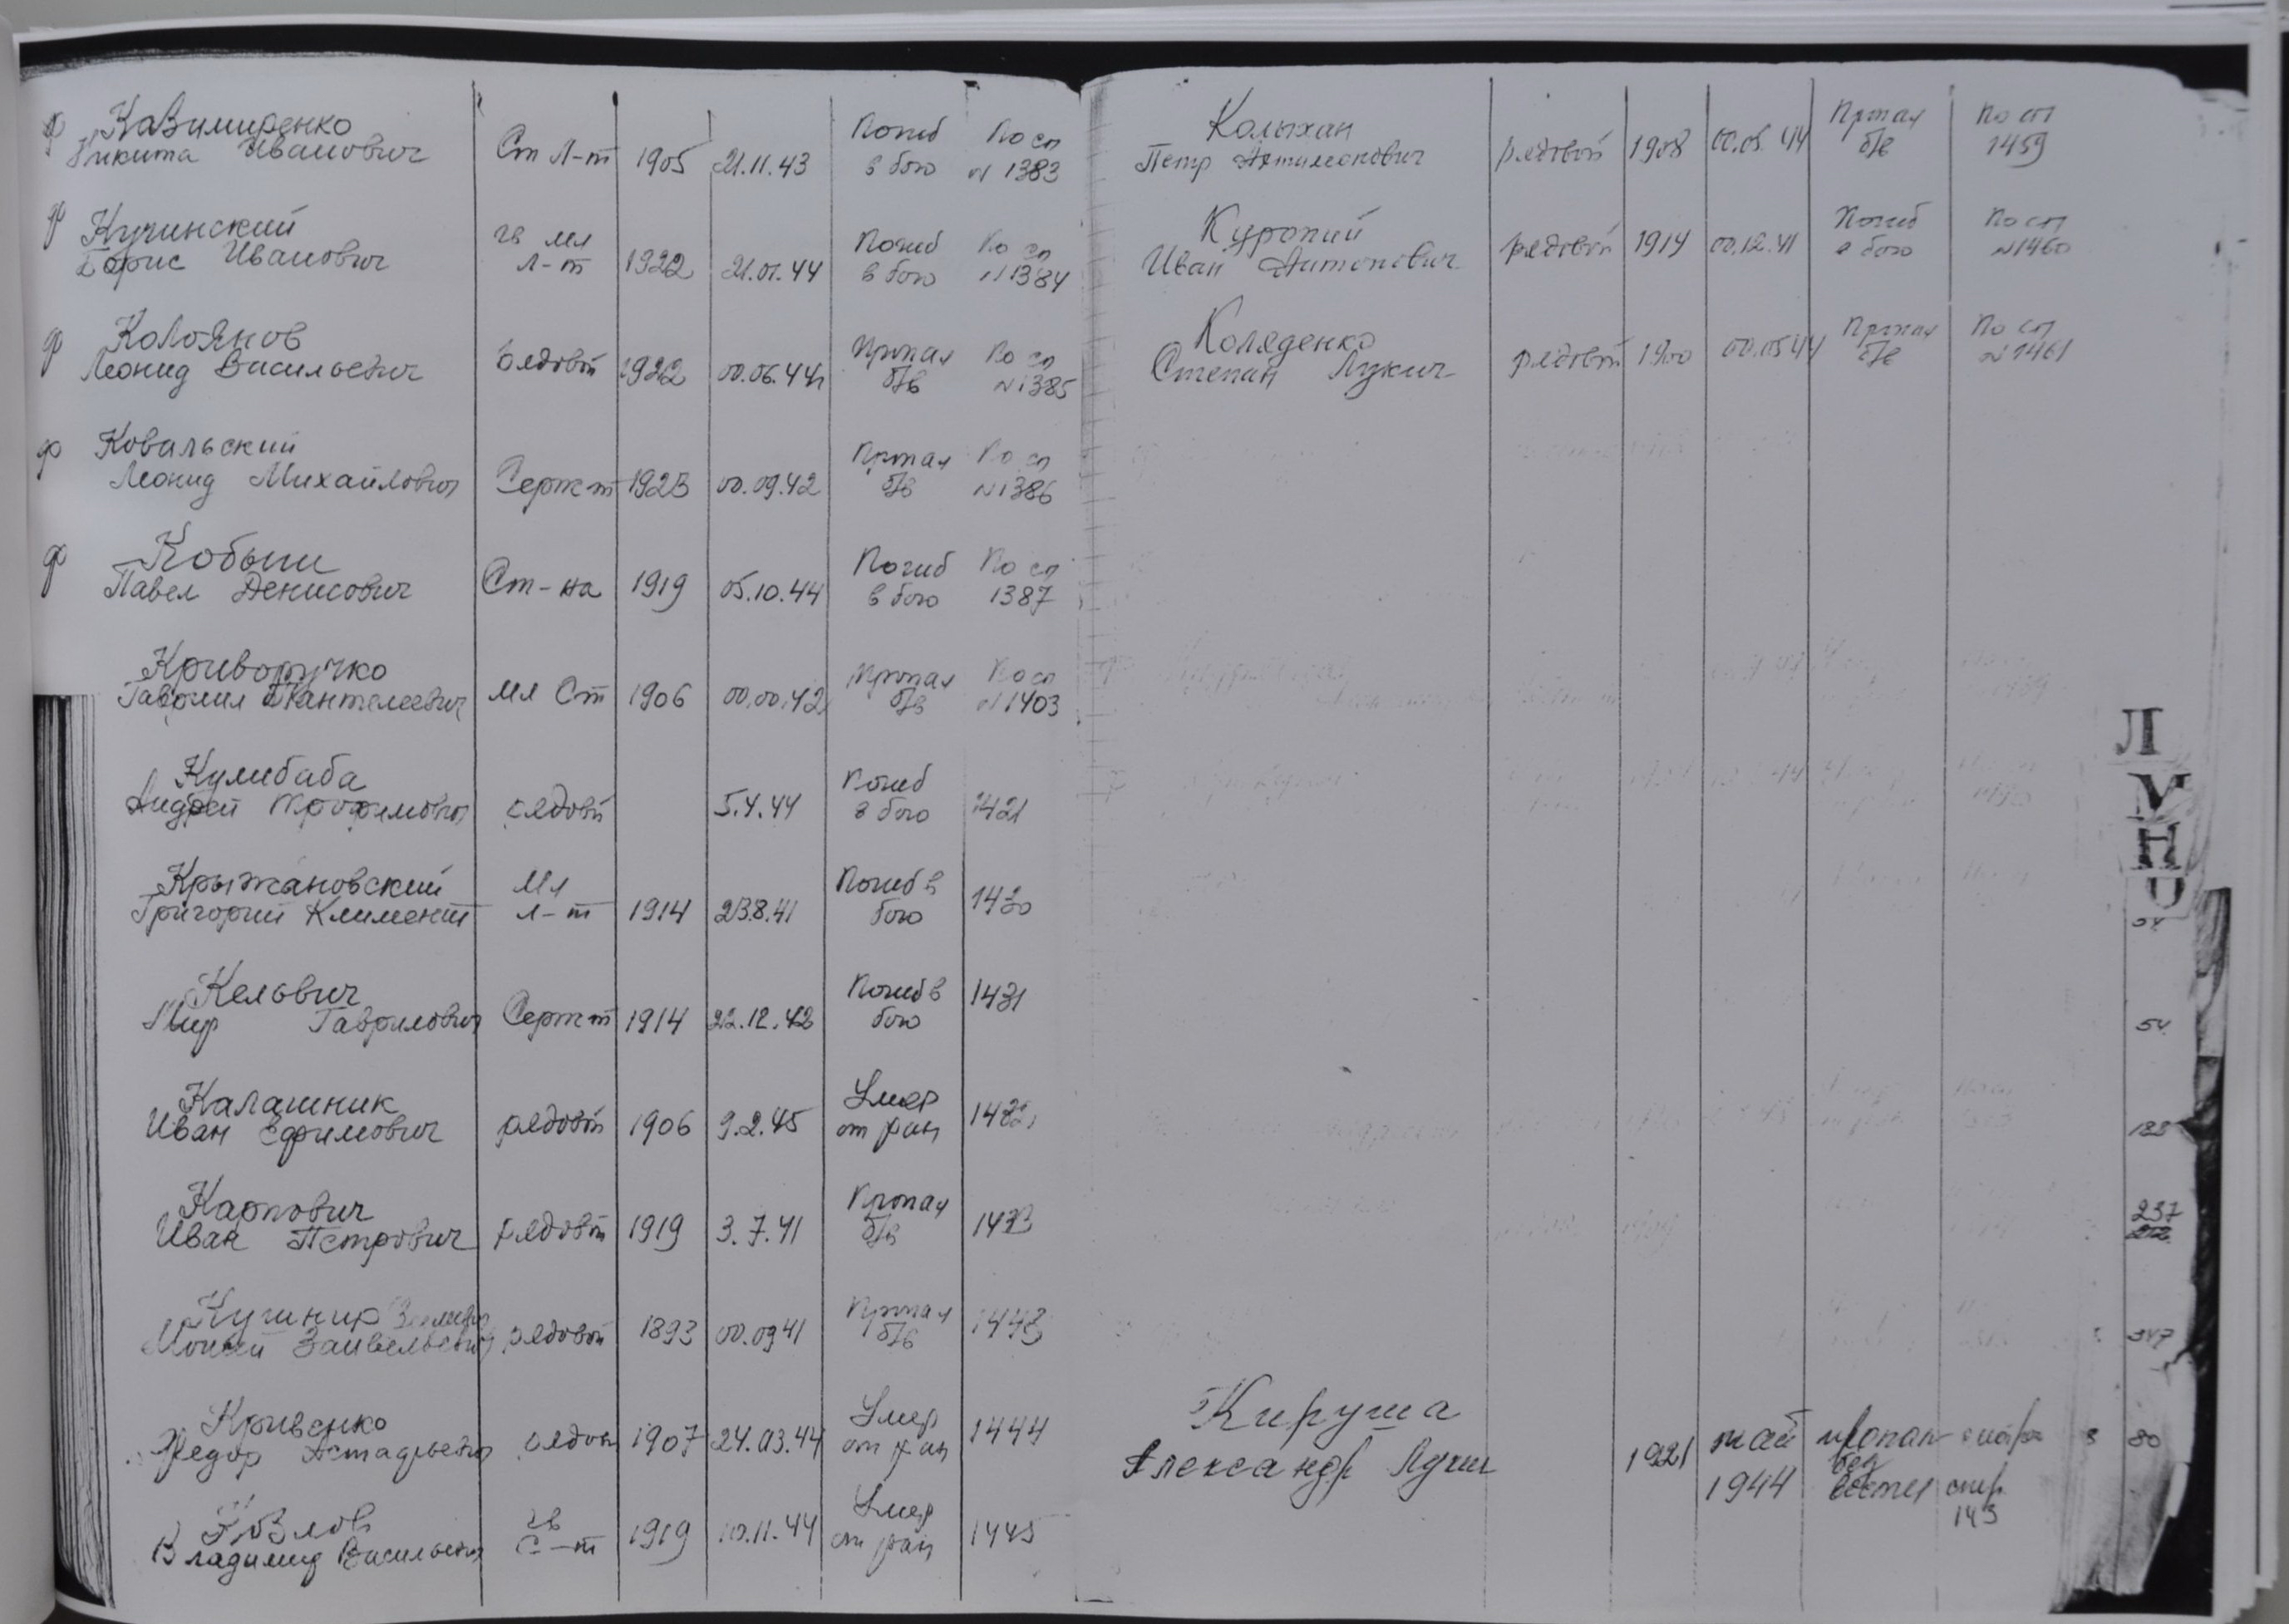 Казимиренко
Никита Иванович Ст Л-т 1905 21.11.43 Погиб в бою По сп № 1383
Кучинский
Борис Иванович гв мл л-т 1922 21.01.44 Погиб в бою По сп №1384
Колоянов
Леонид Васильевич рядовой 1922 00.06.44 Пропал б/в По сп №1385
Ковальский
Леонид Михайлович Серж-т 1923 00.09.42 Пропал б/в По сп №1386
Кобыш
Павел Денисович Ст-на 1919 05.10.44 Погиб в бою По сп 1387
Криворучко
Гаврил Пантелеевич Мл Ст 1906 00.00.42 Пропал б/в По сп №1403
Кулибаба
Андрей Трофимович рядовой 5.4.44 Погиб в бою 1421
Крыжановский
Григорий Климент Мл л-т 1914 23.8.41 Погиб в бою 1430
Кельвич
Гаврилович Серж-т 1914 22.12.42 Погиб в бою 1431
Калашник
Иван Ефимович рядовой 1906 9.2.45 Умер от ран
Карпович
Иван Петрович рядовой 1919 3.7.41 Пропал б/в 1433
Кушнир
рядовой 1893 00.09.41 Пропал б/в 1443
Кривенко
Федор Астафьевич рядов 1907 24.03.44 Умер от ран 1444
Козлов
Владимир Васильевич гв С-т 1919 10.11.44 Умер от ран 1445
Колыхан
Петр рядовой 1908 00.05.44 Пропал б/в По сп 1459
Куропий
Иван Антонович рядовой 1914 00.12.41 Погиб в бою По сп №1460
Коляденко
Степан Лукич рядовой 1900 00.05.44 Пропал б/в По сп №1461
Кируша
Александр Лукич 1921 май 1944 пропал без вести 143
Л
М
Н
О
54
54
188
237
347
80